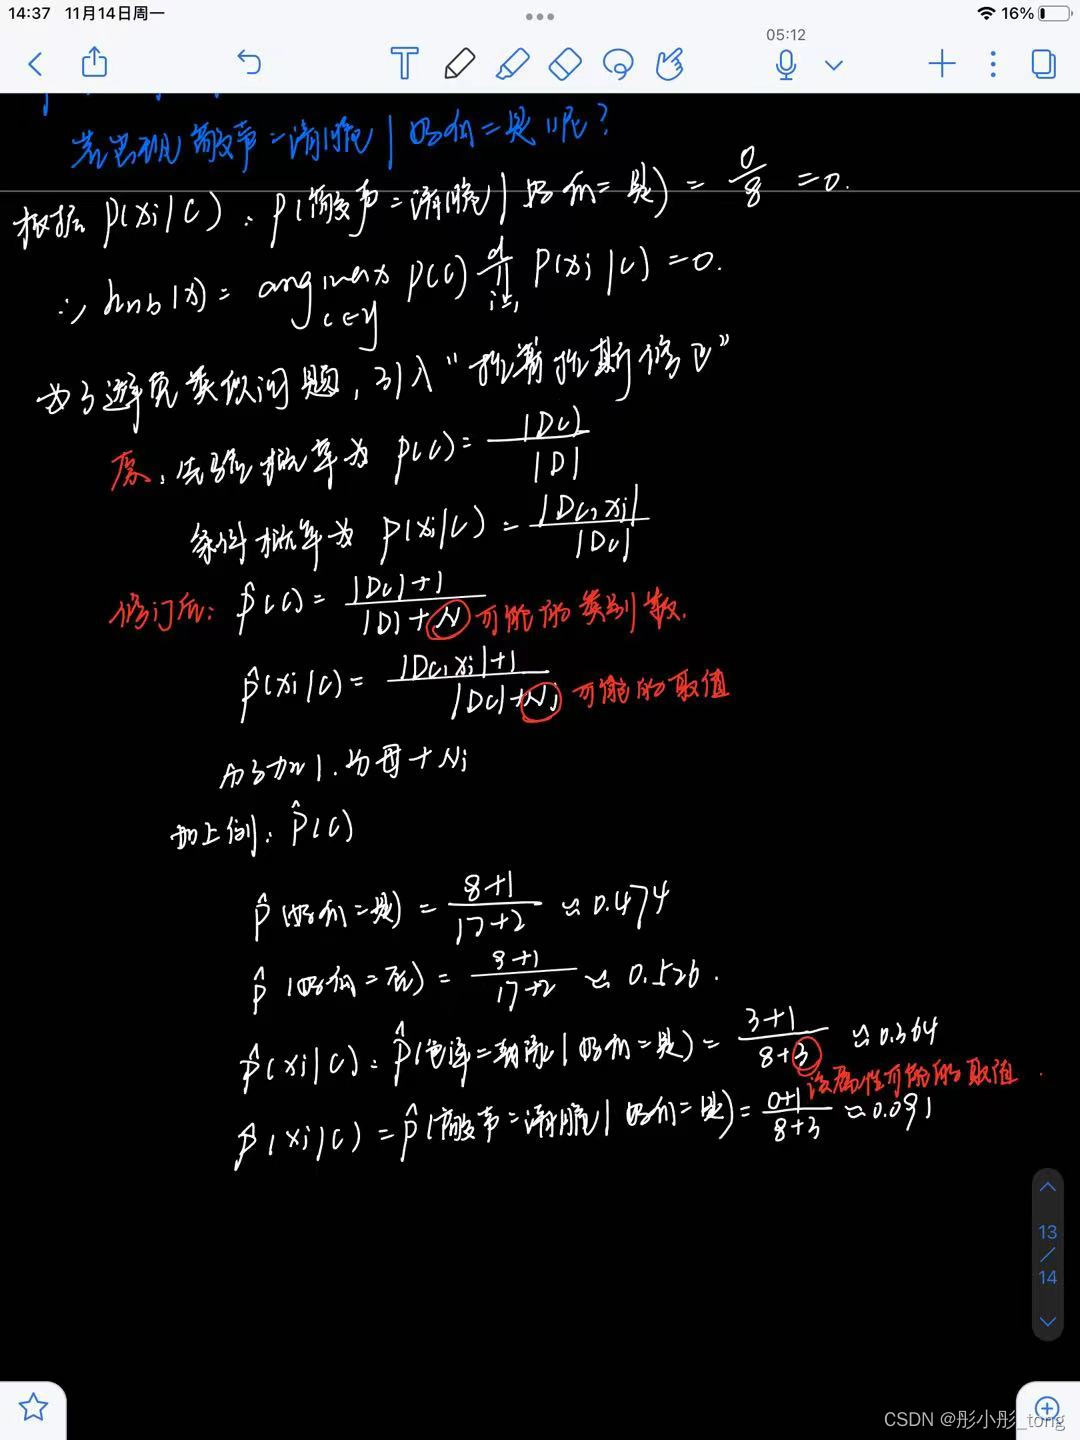 14:37 11月14日周一
16%
05:12
若出现敲声=清脆|好瓜=是呢?
根据P(xi|c): P(敲声=清脆|好瓜=是) = 0/8 = 0.
∴ hnb(x) = arg max c∈y P(c) ∏ d i=1 P(xi|c) = 0.
为了避免类似问题, 引入“拉普拉斯修正”
原: 先验概率为 P(c) = |Dc| / |D|
条件概率为 P(xi|c) = |Dc,xi| / |Dc|
修订后: P̂(c) = |Dc|+1 / |D|+N 可能的类别数.
P̂(xi|c) = |Dc,xi|+1 / |Dc|+Ni 可能的取值
分子加1. 分母+Ni
如上例: P̂(c)
P̂(好瓜=是) = 8+1 / 17+2 ≈ 0.474
P̂(好瓜=否) = 9+1 / 17+2 ≈ 0.526.
P̂(xi|c): P̂(色泽=青绿|好瓜=是) = 3+1 / 8+3 ≈ 0.364
该属性可能的取值.
P̂(xi|c) = P̂(敲声=清脆|好瓜=是) = 0+1 / 8+3 ≈ 0.091
13
/
14
CSDN @彤小彤_tong